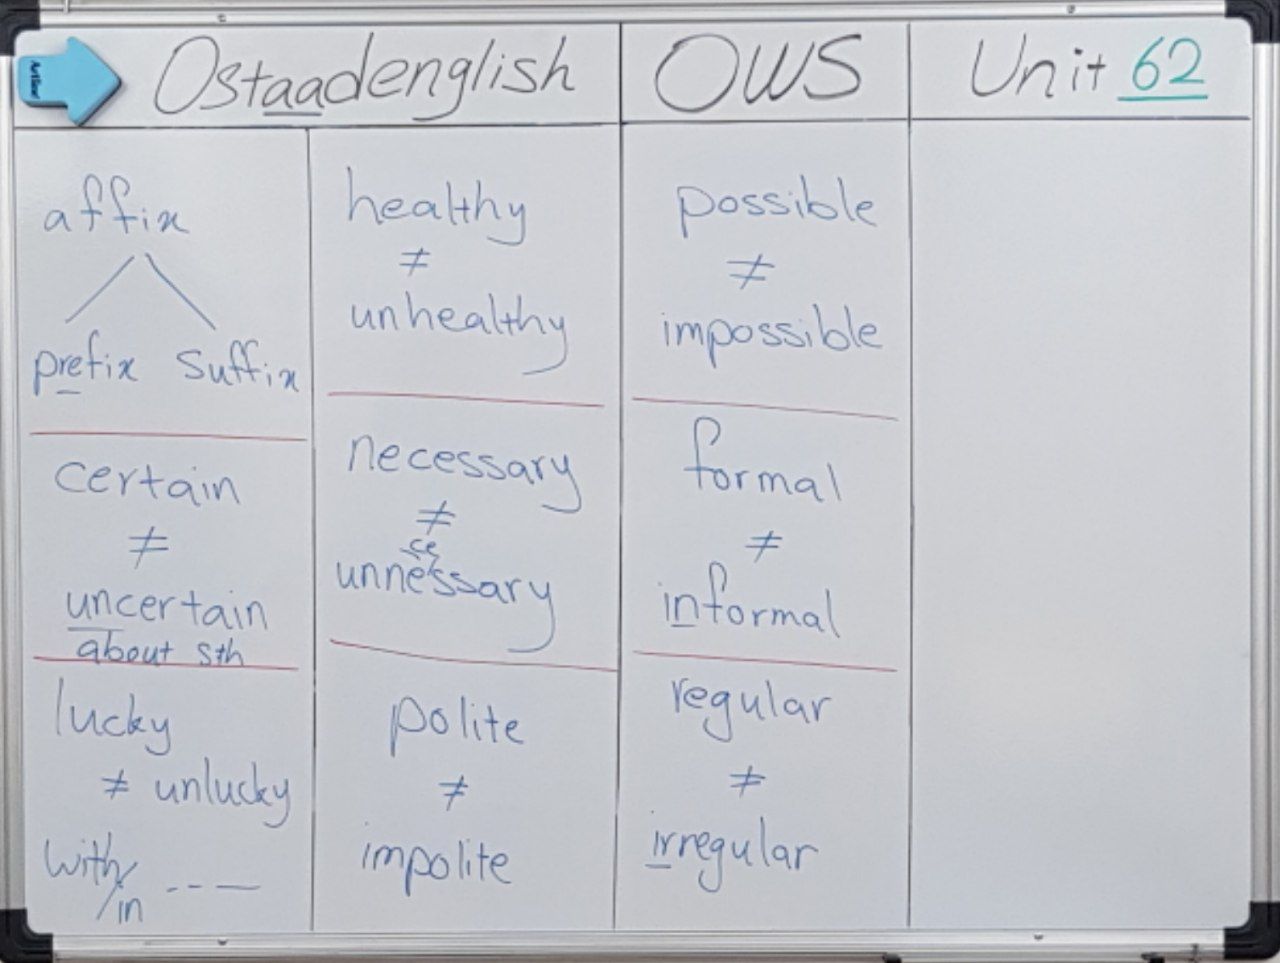 Ostaadenglish
OWS
Unit 62
affix
prefix suffix
certain
≠
uncertain
about sth
lucky
≠ unlucky
with/in ---
healthy
≠
unhealthy
necessary
≠
ce
unnessary
polite
≠
impolite
possible
≠
impossible
formal
≠
informal
regular
≠
irregular